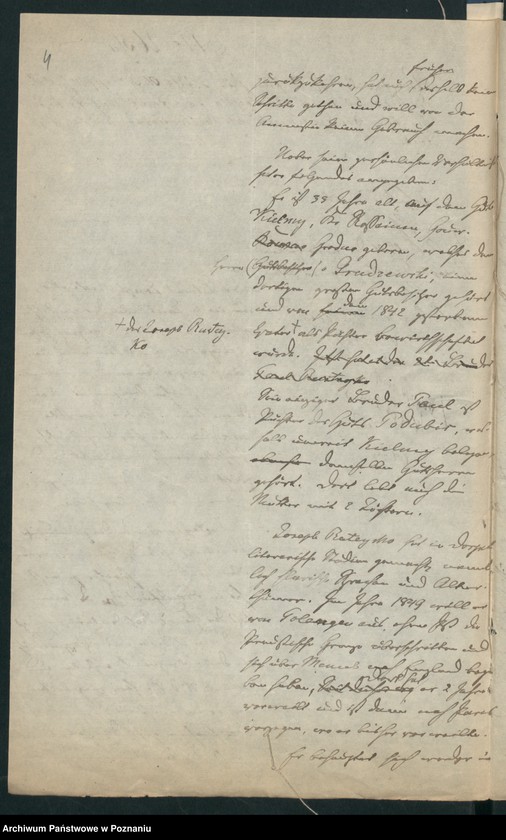 4
früher
zurückzukehren, hat auch deshalb keine
Schritte gethan und will von der
Amnestie keinen Gebrauch machen.
Ueber seine persönlichen Verhältnisse
folgendes angegeben:
Er ist 38 Jahre alt, auf dem Gute
Kielmy, Kr. Rossienen, Gouv.
Kowno geboren, welches dem
Herrn Gutsbesitzer v. Grudzewski, einem
dortigen großen Gutsbesitzer gehört
und von dem 1842 gestorbenen
Vater + als Pächter bewirthschaftet
+ des Joseph Rutey-
ko
wurde.
Paul Ruteyko
Sein einziger Bruder Paul ist
Pächter des Guts Podubis, welches
unweit Kielmy belegen
demselben Gutsherrn
gehört. Dort lebt auch die
Mutter mit 2 Töchtern.
Joseph Ruteyko hat in Dorpat
literarische Studien gemacht, nament-
lich slavische Sprachen und Alter-
thümer. Im Jahre 1849 will er
von Tolangen aus ohne Paß die
Preußische Grenze überschritten und
sich über Memel nach England bege-
ben haben, dort hat er 2 Jahre
verweilt und ist dann nach Paris
gezogen, wo er bisher verweilte.
Er behauptet sich weder in
Archiwum Państwowe w Poznaniu